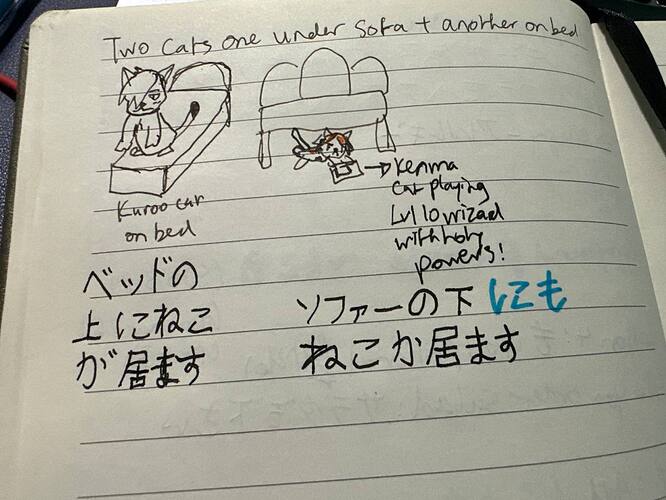 Two cats one under sofa + another on bed
Kuroo cat
on bed
→ Kenma
cat playing
Lvl 10 wizad
with holy
powers!
ベッドの
上にねこ
が居ます
ソファーの下にも
ねこが居ます